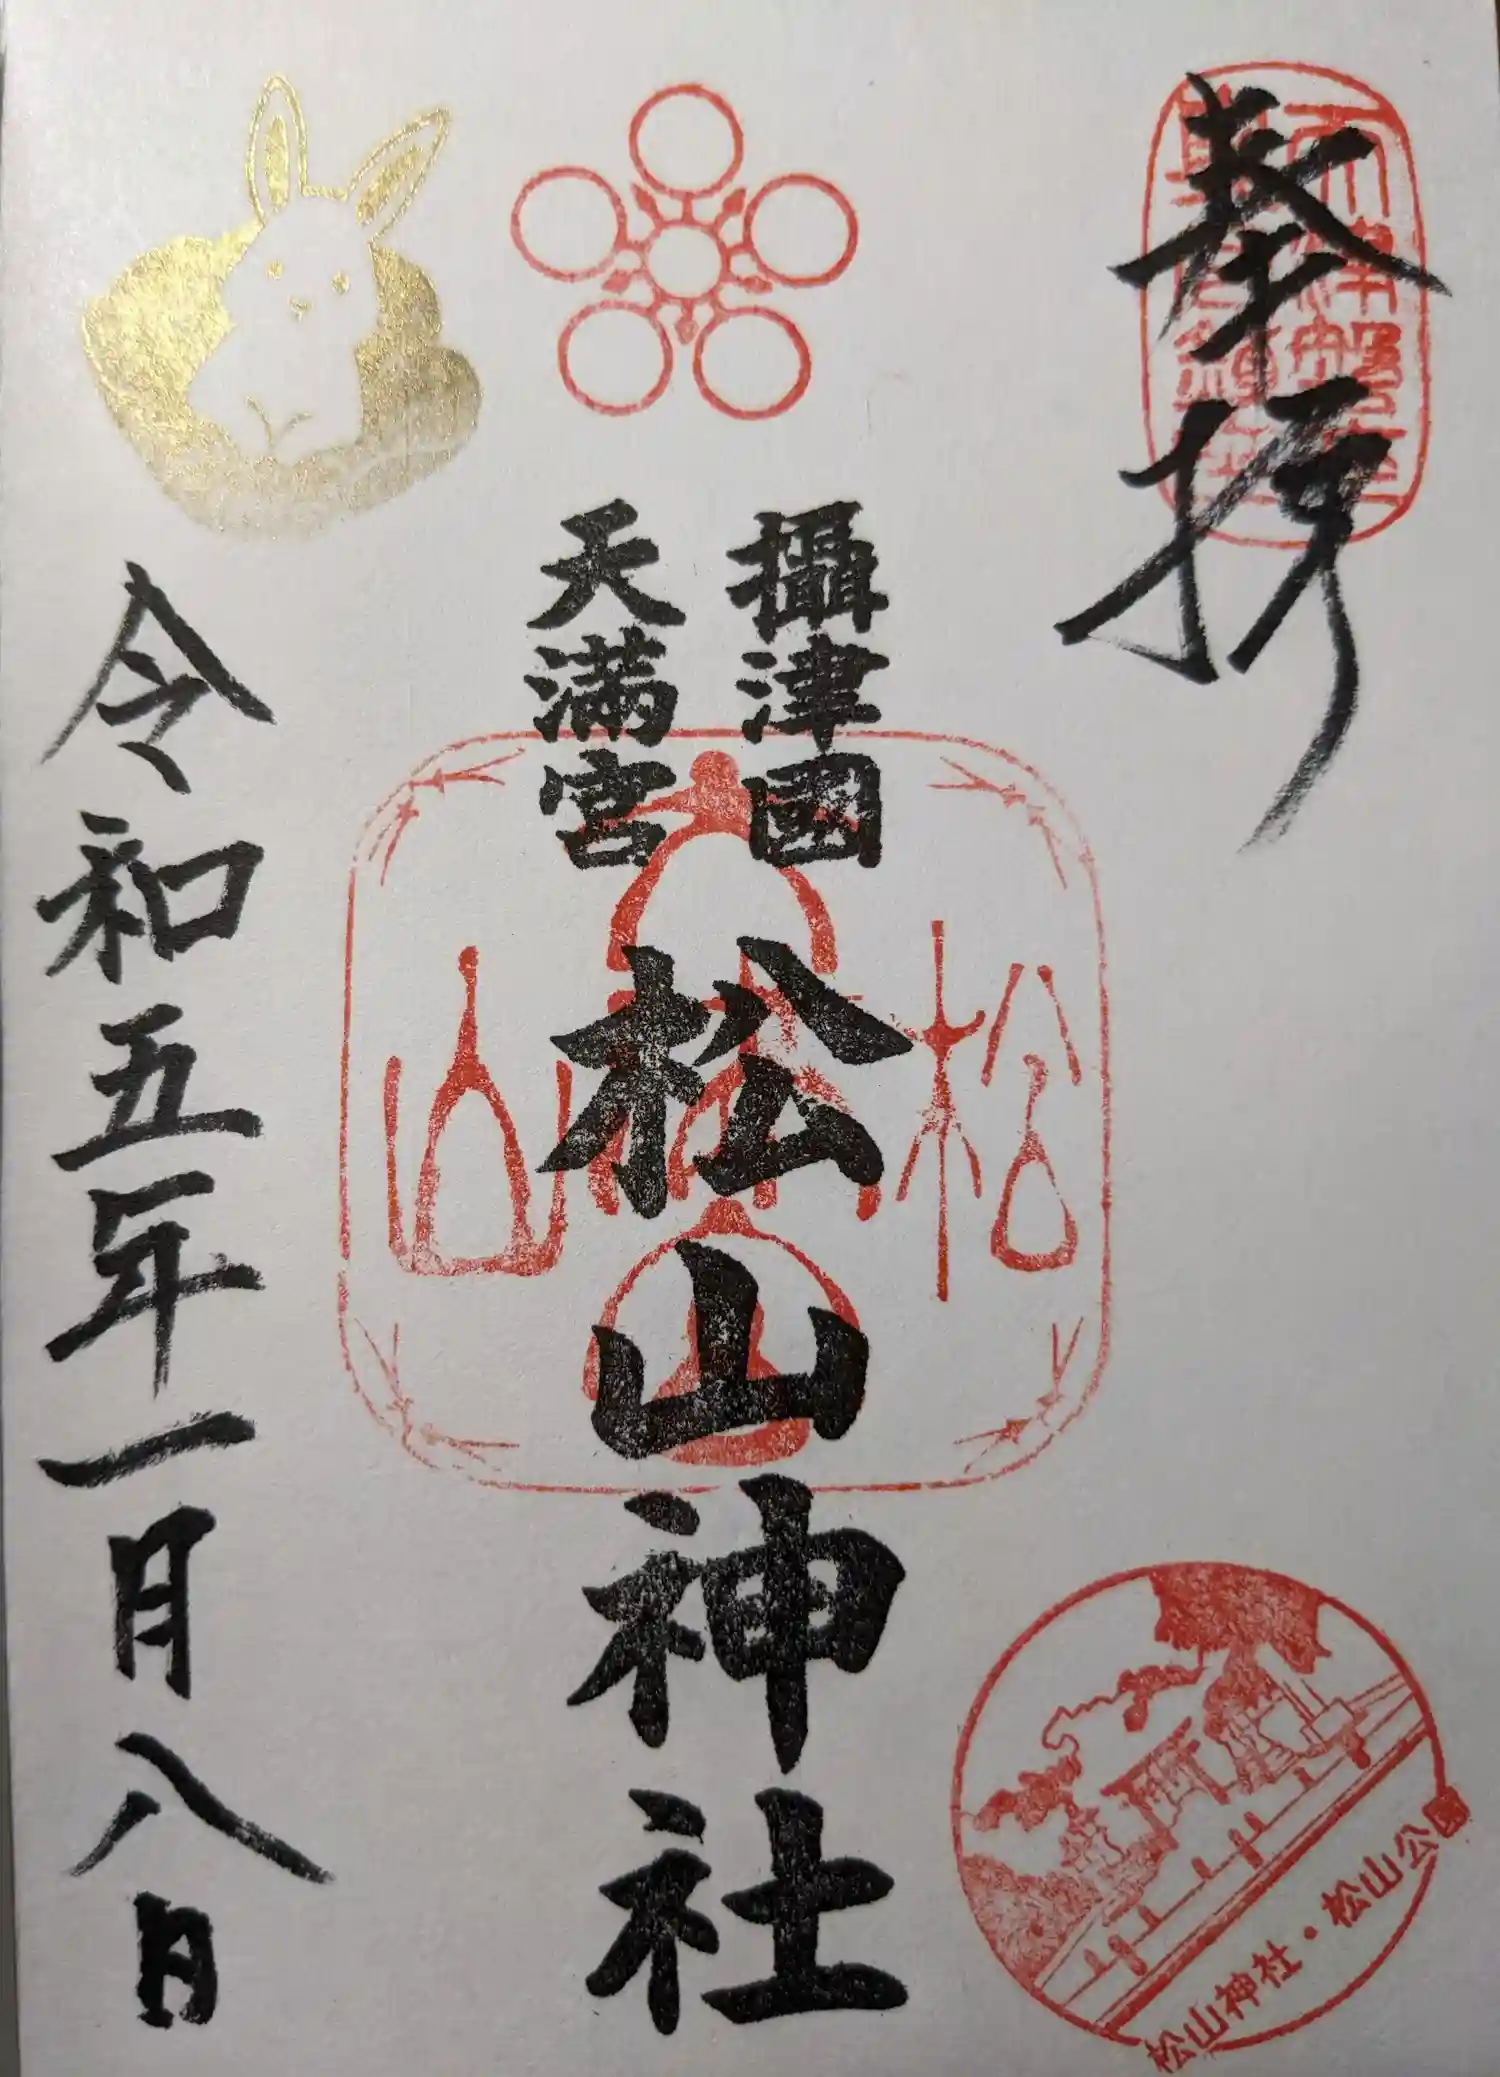 奉拝
攝津國
天満宮
松山神社
令和五年一月八日
松山神社・松山公園